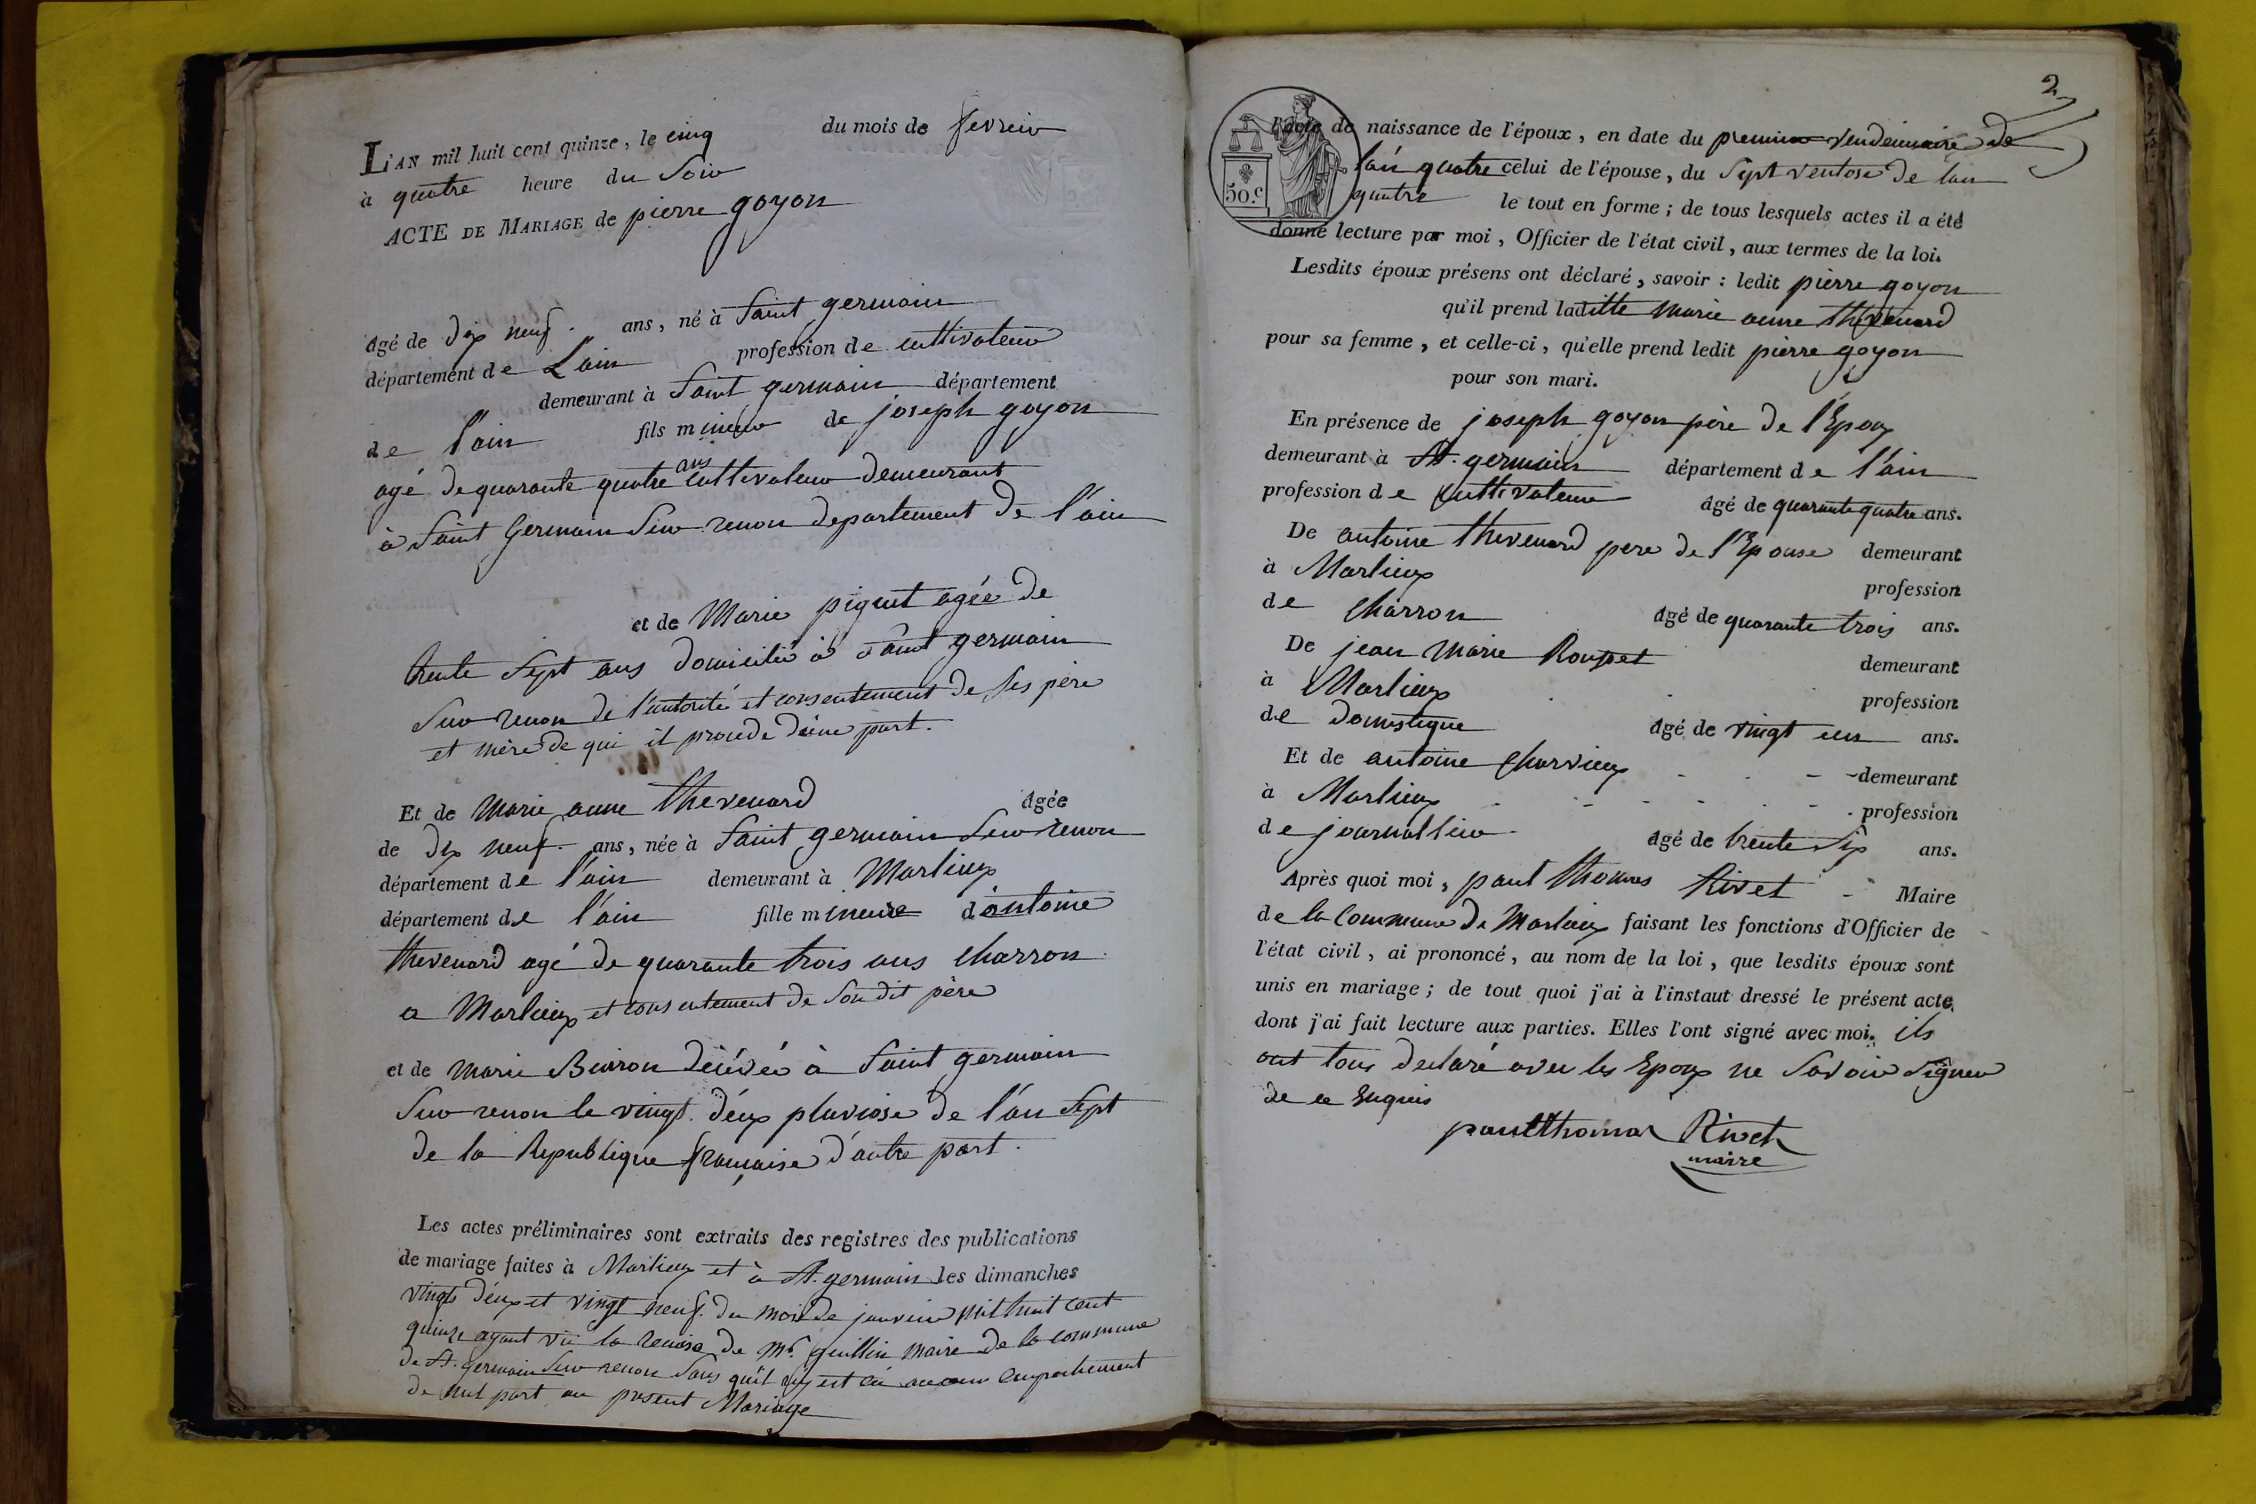 L'AN mil huit cent quinze, le cinq du mois de fevreir
à quatre heure du Soir
ACTE DE MARIAGE de pierre goyon
agé de dix neuf ans, né à Saint germain
département de L'ain profession de cultivateur
demeurant à Saint germain département
de l'ain fils mineur de joseph goyon
agé de quarante quatre ans Cultivateur demeurant
à Saint Germain Sur renon departement de l'ain
et de Marie piguet agée de
trente Sept ans domicilié à Saint germain
Sur renon de l'autorité et consentement de Ses père
et mère de qui il procede d'une part.
Et de Marie anne thevenard agée
de dix neuf ans, née à Saint germain Sur renon
département de l'ain demeurant à Marlieux
département de l'ain fille mineure d'antoine
thevenard agé de quarante trois ans Charron
a Marlieux et consentement de Son dit père
et de Marie Buiron décévéé à Saint germain
Sur renon le vingt deux pluviose de l'an Sept
de la Republique française d'autre part.
Les actes préliminaires sont extraits des registres des publications
de mariage faites à Marlieux et à St. germain les dimanches
vingts deux et vingt neuf du mois de janvier mil huit cent
quinze ayant vû la remise de Mr. guillin maire de la commune
de St. germain Sur renon Sans qu'il n'y est eu aucun empechement
de nul part au present Mariage
2
l'acte de naissance de l'époux, en date du premier vendemiaire de
l'an quatre celui de l'épouse, du Sept ventose de l'an
quatre le tout en forme; de tous lesquels actes il a été
donné lecture par moi, Officier de l'état civil, aux termes de la loi.
50.c
Lesdits époux présens ont déclaré, savoir: ledit pierre goyon
qu'il prend laditte Marie anne thevenard
pour sa femme, et celle-ci, qu'elle prend ledit pierre goyon
pour son mari.
En présence de joseph goyon père de l'Epoux
demeurant à St. germain département de l'ain
profession de Cultivateur agé de quarante quatre ans.
De antoine thevenard pere de l'Epouse demeurant
à Marlieux profession
de Charron agé de quarante trois ans.
De jean Marie Rousset demeurant
à Marlieux profession
de domestique agé de vingt un ans.
Et de antoine Charvieux demeurant
à Marlieux profession
de journallier agé de trente Six ans.
Après quoi moi, paul thomas Rivet Maire
de la Commune de Marlieux faisant les fonctions d'Officier de
l'état civil, ai prononcé, au nom de la loi, que lesdits époux sont
unis en mariage; de tout quoi j'ai à l'instaut dressé le présent acte,
dont j'ai fait lecture aux parties. Elles l'ont signé avec moi. ils
ont tous declaré avec les Epoux ne Savoir Signer
de ce Enquis
paulthomas Rivet
maire